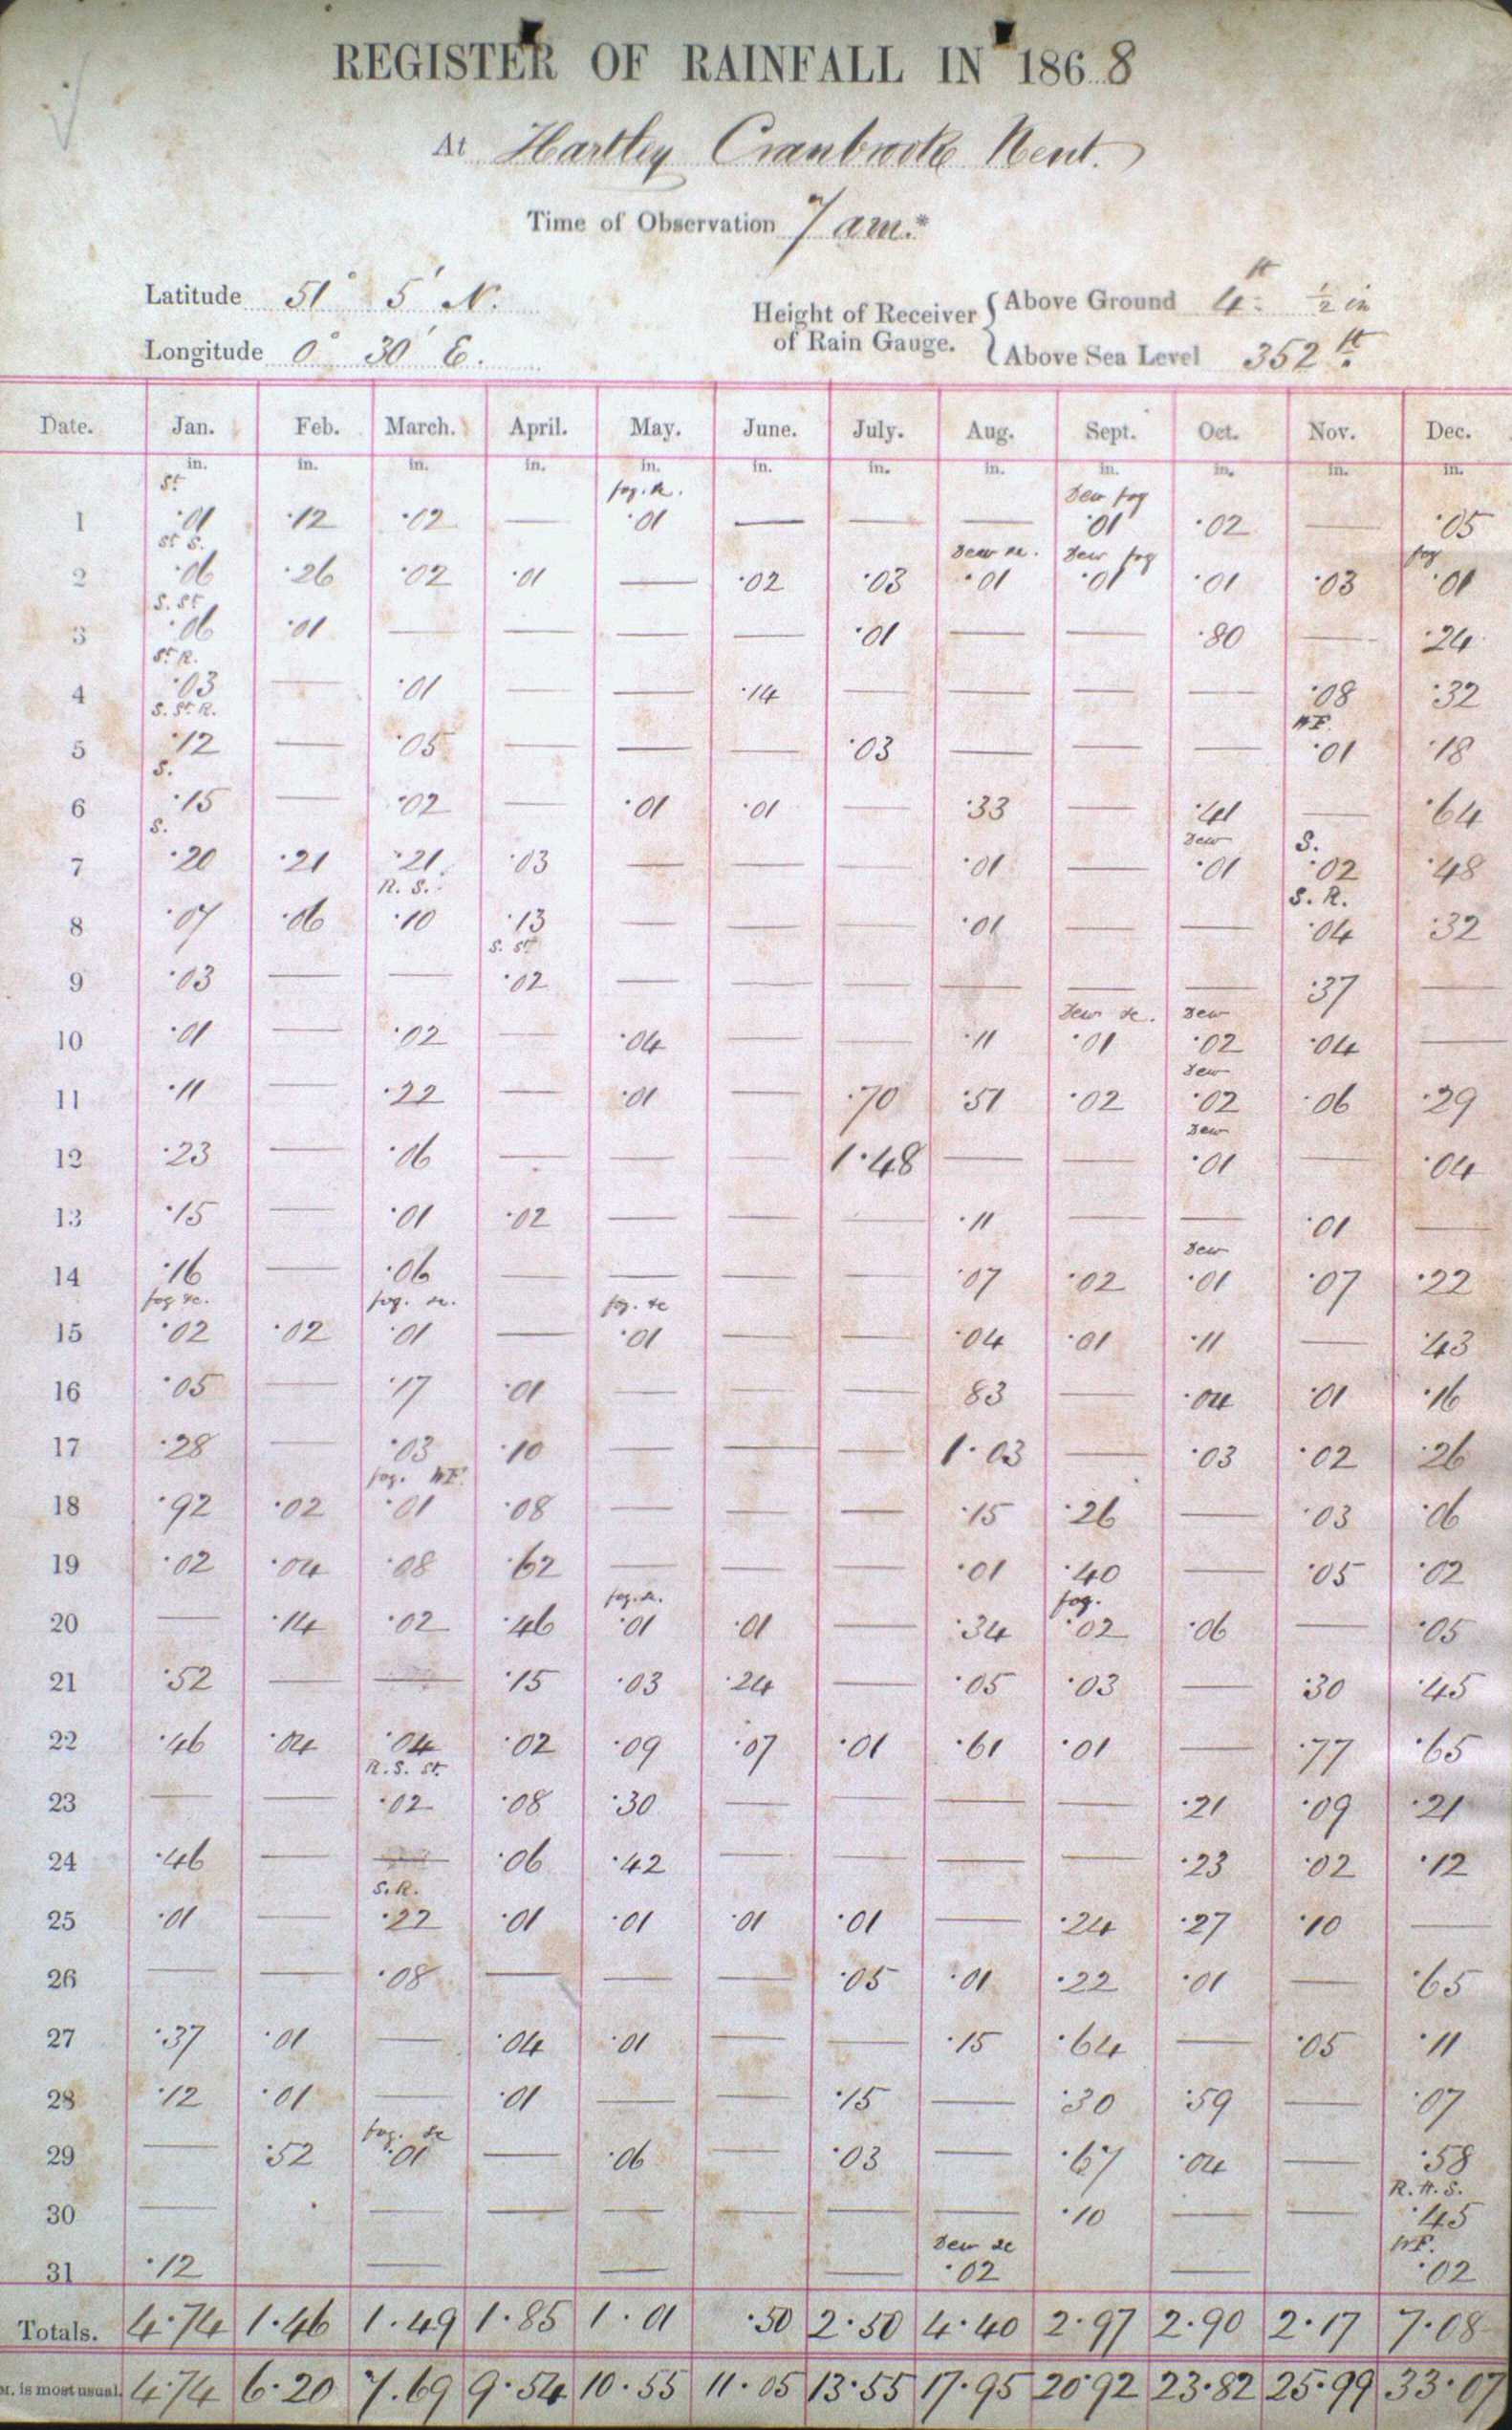 REGISTER OF RAINFALL IN 1868
At Hartley Cranbrook Kent.
Time of Observation 7 am.*
Latitude 51° 5′ N.
Longitude 0° 30′ E.
Height of Receiver of Rain Gauge. { Above Ground 4 ft. ½ in
Above Sea Level 352 ft.
Date. Jan. Feb. March. April. May. June. July. Aug. Sept. Oct. Nov. Dec.
in. in. in. in. in. in. in. in. in. in. in. in.
St. fog. &c. Dew fog
1 ·01 ·12 ·02 — ·01 — — — ·01 ·02 — ·05
St S. Dew &c. Dew fog fog
2 ·06 ·26 ·02 ·01 — ·02 ·03 ·01 ·01 ·01 ·03 ·01
S. St
3 ·06 ·01 — — — — ·01 — — ·80 — ·24
St. R.
4 ·03 — ·01 — — ·14 — — — — ·08 ·32
S. St. R. HF.
5 ·12 — ·05 — — — ·03 — — — ·01 ·18
S.
6 ·15 — ·02 — ·01 ·01 — ·33 — ·41 — ·64
S. Dew S.
7 ·20 ·21 ·21 ·03 — — — ·01 — ·01 ·02 ·48
R. S. S. R.
8 ·07 ·06 ·10 ·13 — — — ·01 — — ·04 ·32
S. St
9 ·03 — — ·02 — — — — — — ·37 —
Dew &c. Dew
10 ·01 — ·02 — ·04 — — ·11 ·01 ·02 ·04 —
Dew
11 ·11 — ·22 — ·01 — ·70 ·51 ·02 ·02 ·06 ·29
Dew
12 ·23 — ·06 — — — 1·48 — — ·01 — ·04
13 ·15 — ·01 ·02 — — — ·11 — — ·01 —
Dew
14 ·16 — ·06 — — — — ·07 ·02 ·01 ·07 ·22
fog &c. fog. &c. fog. &c
15 ·02 ·02 ·01 — ·01 — — ·04 ·01 ·11 — ·43
16 ·05 — ·17 ·01 — — — 83 — ·04 ·01 ·16
17 ·28 — ·03 ·10 — — — 1·03 — ·03 ·02 ·26
fog. HF.
18 ·92 ·02 ·01 ·08 — — — ·15 ·26 — ·03 ·06
19 ·02 ·04 ·08 ·62 — — — ·01 ·40 — ·05 ·02
fog. &c. fog.
20 — ·14 ·02 ·46 ·01 ·01 — ·34 ·02 ·06 — ·05
21 ·52 — — ·15 ·03 ·24 — ·05 ·03 — ·30 ·45
22 ·46 ·04 ·04 ·02 ·09 ·07 ·01 ·61 ·01 — ·77 ·65
R. S. St.
23 — — ·02 ·08 ·30 — — — — ·21 ·09 ·21
24 ·46 — — ·06 ·42 — — — — ·23 ·02 ·12
S. R.
25 ·01 — ·22 ·01 ·01 ·01 ·01 — ·24 ·27 ·10 —
26 — — ·08 — — — ·05 ·01 ·22 ·01 — ·65
27 ·37 ·01 — ·04 ·01 — — ·15 ·64 — ·05 ·11
28 ·12 ·01 — ·01 — — ·15 — ·30 ·59 — ·07
fog. &c
29 — ·52 ·01 — ·06 — ·03 — ·67 ·04 — ·58
R. H. S.
30 — · — — — — — — ·10 — — ·45
Dew &c HF.
31 ·12 — — — ·02 — ·02
Totals. 4·74 1·46 1·49 1·85 1·01 ·50 2·50 4·40 2·97 2·90 2·17 7·08
is most usual. 4·74 6·20 7·69 9·54 10·55 11·05 13·55 17·95 20·92 23·82 25·99 33·07